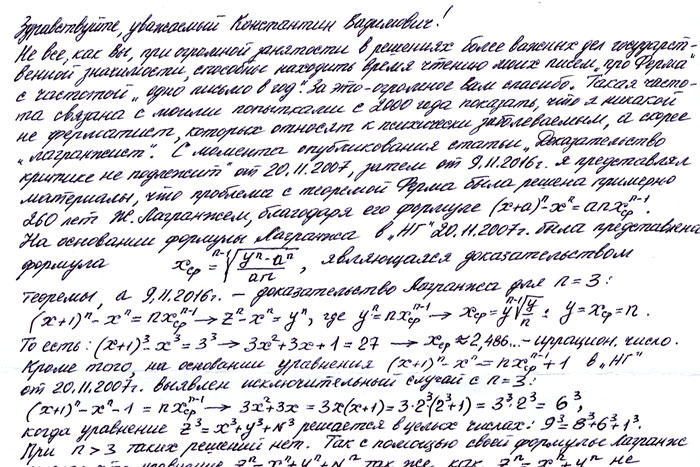 Здравствуйте, уважаемый Константин Вадимович!
Не все, как Вы, при огромной занятости в решениях более важных дел государст-
венной значимости, способны находить время чтению моих писем „про Ферма"
с частотой „одно письмо в год". За это-огромное вам спасибо. Такая часто-
та связана с моими попытками с 2000 года показать, что я никакой
не ферматист, которых относят к психически заболеваемым, а скорее
„лагранжист". С момента опубликования статьи „Доказательство
критике не подлежит" от 20.11.2007, затем от 9.11.2016г. я представлял
материалы, что проблема с теоремой Ферма была решена примерно
260 лет Ж. Лагранжем, благодаря его формуле (x+a)ⁿ-xⁿ=anxср^(n-1).
На основании формулы Лагранжа в „НГ" 20.11.2007г. была представлена
формула xср = ^(n-1)√((yⁿ-aⁿ)/(an)), являющаяся доказательством
теоремы, а 9.11.2016г. – доказательство Лагранжа для n=3:
(x+1)ⁿ-xⁿ=nxср^(n-1) → zⁿ-xⁿ=yⁿ, где yⁿ=nxср^(n-1) → xср=y ^(n-1)√(y/n) : y=xср=n.
То есть: (x+1)³-x³=3³ → 3x²+3x+1=27 → xср≈2,486...-иррацион. число.
Кроме того, на основании уравнения (x+1)ⁿ-xⁿ=nxср^(n-1)+1 в „НГ"
от 20.11.2007г. выявлен исключительный случай с n=3:
(x+1)ⁿ-xⁿ-1=nxср^(n-1) → 3x²+3x=3x(x+1)=3·2³(2³+1)=3³·2³=6³,
когда уравнение z³=x³+y³+N³ решается в целых числах: 9³=8³+6³+1³.
При n>3 таких решений нет. Так с помощью своей формулы Лагранж
что уравнение zⁿ=xⁿ+yⁿ+Nⁿ так же, как zⁿ=xⁿ+yⁿ не